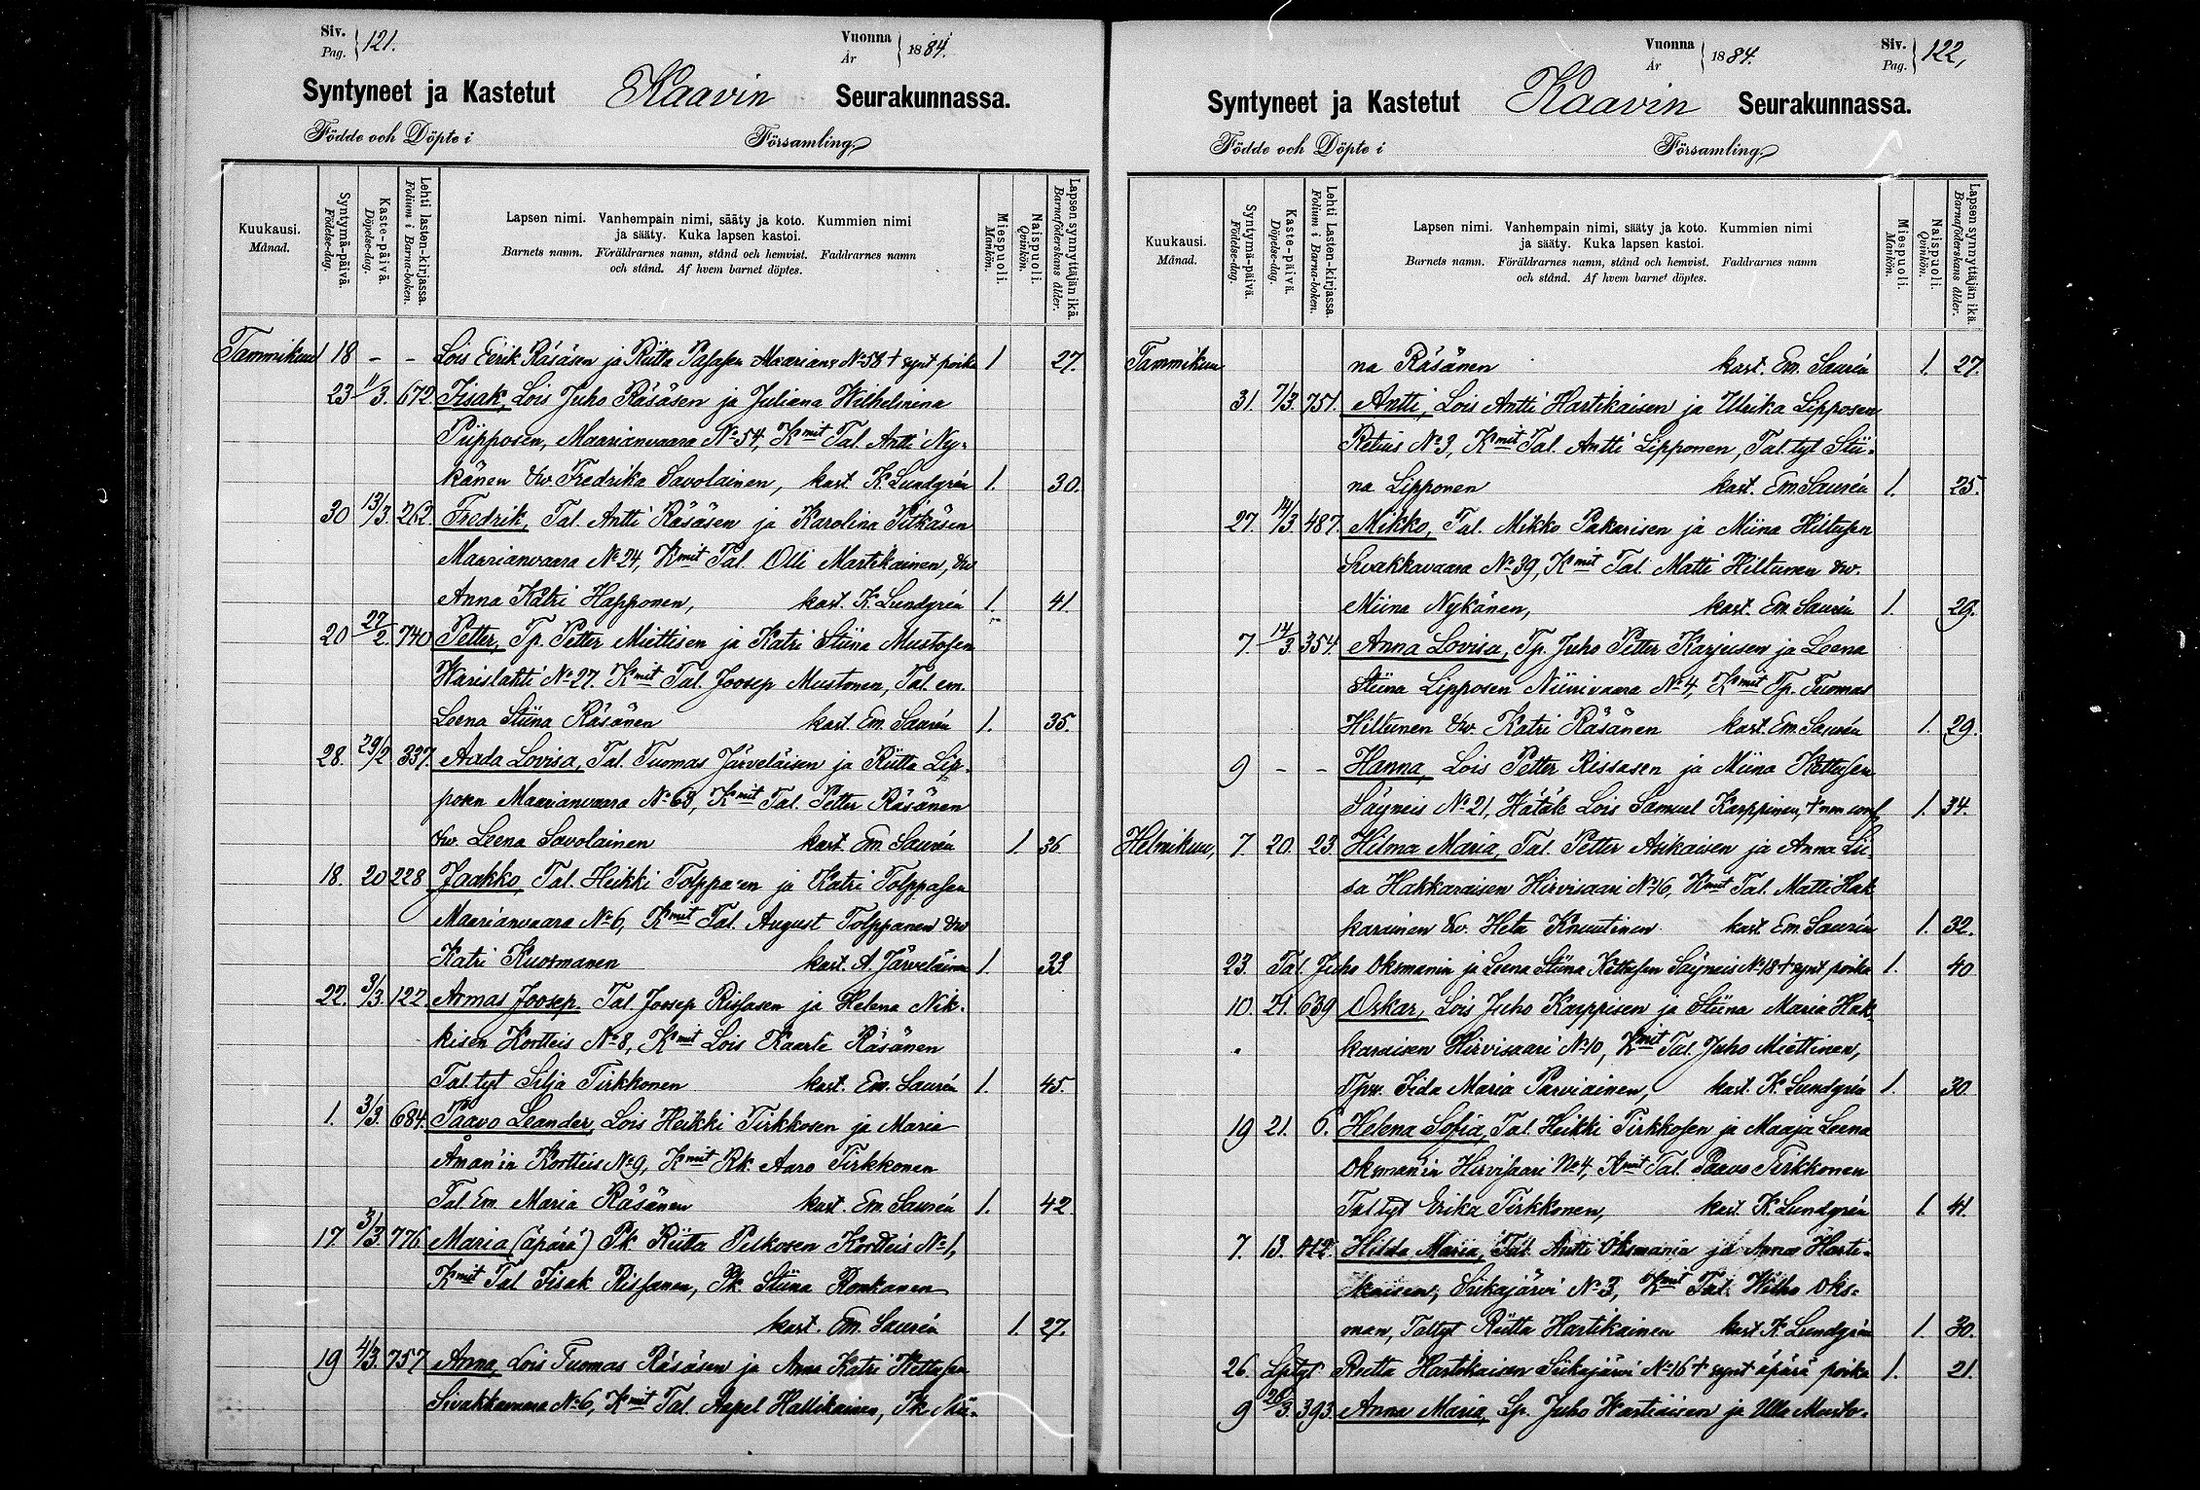 Siv. Pag. 121. Vuonna År 1884.
Syntyneet ja Kastetut Kaavin Seurakunnassa.
Födde och Döpte i Församling
Kuukausi. Månad.
Syntymä-päivä. Födelse-dag.
Kaste-päivä. Döpelse-dag.
Lehti lasten-kirjassa. Folium i Barna-boken.
Lapsen nimi. Vanhempain nimi, sääty ja koto. Kummien nimi
ja sääty. Kuka lapsen kastoi.
Barnets namn. Föräldrarnes namn, stånd och hemvist. Faddrarnes namn
och stånd. Af hvem barnet döptes.
Miespuoli. Mankön.
Naispuoli. Qvinkön.
Lapsen synnyttäjän ikä. Barnaföderskans ålder.
Tammikuu 18 - - Lois Eerik Räsäsen ja Riitta Pasasen Maarianv No 58 + synt poika 1 27.
23 11/3. 672. Iisak, Lois Juho Räsäsen ja Juliana Wilhelmina
Piipposen, Maarianvaara No 54, Kmit Tal. Antti Ny-
känen Vw. Fredrika Savolainen, kast. K. Lundgrén 1. 30.
30 13/3. 262. Fredrik, Tal. Antti Räsäsen ja Karolina Pitkäsen
Maarianvaara No 24, Kmit Tal. Olli Martikainen, Vw
Anna Katri Happonen, kast. K. Lundgrén 1. 41.
20 27/2. 740 Petter, Tp. Petter Miettisen ja Katri Stiina Mustosen
Warislahti No 27. Kmit Tal. Joosep Mustonen, Tal. em.
Leena Stiina Räsänen kast. Em. Saurén 1. 35.
28. 29/2 337. Aada Lovisa, Tal. Tuomas Järveläisen ja Riitta Lip-
posen Maarianvaara No 63, Kmit Tal. Petter Räsänen
Vw. Leena Savolainen kast. Em. Saurén 1. 36
18. 20 228 Jaakko, Tal. Heikki Tolppasen ja Katri Tolppasen
Maarianvaara No 6, Kmit Tal. August Tolppanen Vw
Katri Kuosmanen kast. A. Järveläinen 1. 33.
22. 3/3. 122 Armas Joosep Tal Joosep Rissasen ja Helena Nik-
kisen Kortteis No 8, Kmit Lois Kaarle Räsänen
Tal. tyt Silja Tirkkonen kast. Em. Saurén 1. 45.
1. 3/3. 684. Paavo Leander, Lois Heikki Tirkkosen ja Maria
Åman'in Kortteis No 9, Kmit Rk. Aaro Tirkkonen
Tal. Em. Maria Räsänen kast. Em Saurén 1. 42
17. 3/3. 776. Maria (äpärä) Pk. Riitta Pelkosen Kortteis No 1,
Kmit Tal Iisak Rissanen, Pk. Stiina Ronkanen
kast. Em. Saurén 1. 27.
19 4/3. 757 Anna, Lois Tuomas Räsäsen ja Anna Katri Kettusen
Sivakkavaara No 6, Kmit Tal. Aapel Hallikainen, Pk Mii-
Vuonna År 1884. Siv. Pag. 122,
Syntyneet ja Kastetut Kaavin Seurakunnassa.
Födde och Döpte i Församling
Kuukausi. Månad.
Syntymä-päivä. Födelse-dag.
Kaste-päivä. Döpelse-dag.
Lehti Lasten-kirjassa. Folium i Barna-boken.
Lapsen nimi. Vanhempain nimi, sääty ja koto. Kummien nimi
ja sääty. Kuka lapsen kastoi.
Barnets namn. Föräldrarnes namn, stånd och hemvist. Faddrarnes namn
och stånd. Af hvem barnet döptes.
Miespuoli. Mankön.
Naispuoli. Qvinkön.
Lapsen synnyttäjän ikä. Barnaföderskans ålder.
Tammikuu na Räsänen kast. Em. Saurén 1. 27.
31. 7/3. 751. Antti, Lois Antti Hartikaisen ja Ulrika Lipposen
Retuis No 3, Kmit Tal. Antti Lipponen, Tal. tyt Stii-
na Lipponen kast. Em Saurén 1. 25.
27. 14/3 487 Mikko, Tal. Mikko Pakarisen ja Miina Hiltusen
Sivakkavaara No 39, Kmit Tal. Matti Hiltunen Vw.
Miina Nykänen, kast. Em. Saurén 1. 29.
7. 14/3. 354 Anna Lovisa, Tp. Juho Petter Karjuisen ja Leena
Stiina Lipposen Niinivaara No 4, Kmit Tp. Tuomas
Hiltunen Vw. Katri Räsänen kast. Em. Saurén 1. 29.
9 - - Hanna, Lois Petter Rissasen ja Miina Kettusen
Säyneis No 21, Hätäk Lois Samuel Karppinen, + 1. 34.
Helmikuu, 7. 20. 23. Hilma Maria, Tal. Petter Asikaisen ja Anna Lii-
sa Hakkaraisen Hirvisaari No 16, Kmit Tal. Matti Hak
karainen Vw. Heta Knuutinen kast. Em. Saurén 1. 32.
23. Tal Juho Oksmanin ja Leena Stiina Kettusen Säyneis No 18 + synt poika 1. 40
10. 21. 639 Oskar, Lois Juho Karppisen ja Stiina Maria Hak
karaisen Hirvisaari No 10, Kmit Tal. Juho Miettinen,
Tpw. Iida Maria Parviainen, kast. K. Lundgrén 1. 30.
19 21. 6. Helena Sofia, Tal. Heikki Tirkkosen ja Maaja Leena
Oksman'in Hirvisaari No 4, Kmit Tal. Paavo Tirkkonen
Tal tyt Erika Tirkkonen, kast. K. Lundgrén 1. 41.
7. 13. 412. Hilda Maria, Tal. Antti Oksmanin ja Anna Harti-
kaisen, Siikajärvi No 3, Kmit Tal. Wilho Oks-
man, Taltyt Riitta Hartikainen kast K. Lundgrén 1. 30.
26. Lptyt Riitta Hartikaisen Siikajärvi No 16 + synt äpärä poika 1. 21.
9 28/3. 393. Anna Maria, Lp. Juho Hartikaisen ja Ulla Musto-